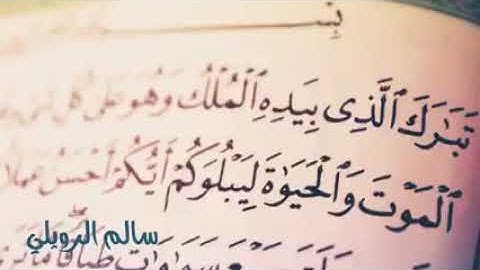 بِسْـ
تَبَٰرَكَ ٱلَّذِى بِيَدِهِ ٱلْمُلْكُ وَهُوَ عَلَىٰ كُلِّ
ٱلْمَوْتَ وَٱلْحَيَوٰةَ لِيَبْلُوَكُمْ أَيُّكُمْ أَحْسَنُ عَمَلًا
سَمَٰوَٰتٍ طِبَاقًا مَّا
سالم الرويلي